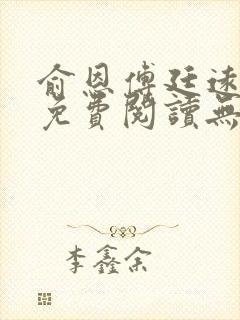 俞恩傅廷遠
免費閱讀無
李鑫余